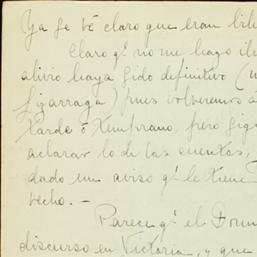 Ya se vé claro que eran
Claro qᵉ no me hago
alivio haya sido definitivo
Lizarraga) pues volveremos á
tarde ó temprano, pero
aclarar lo de las cuentas,
dado un aviso qᵉ le tiene
hecho. —
Parece qᵉ el
discurso en Victoria, y que